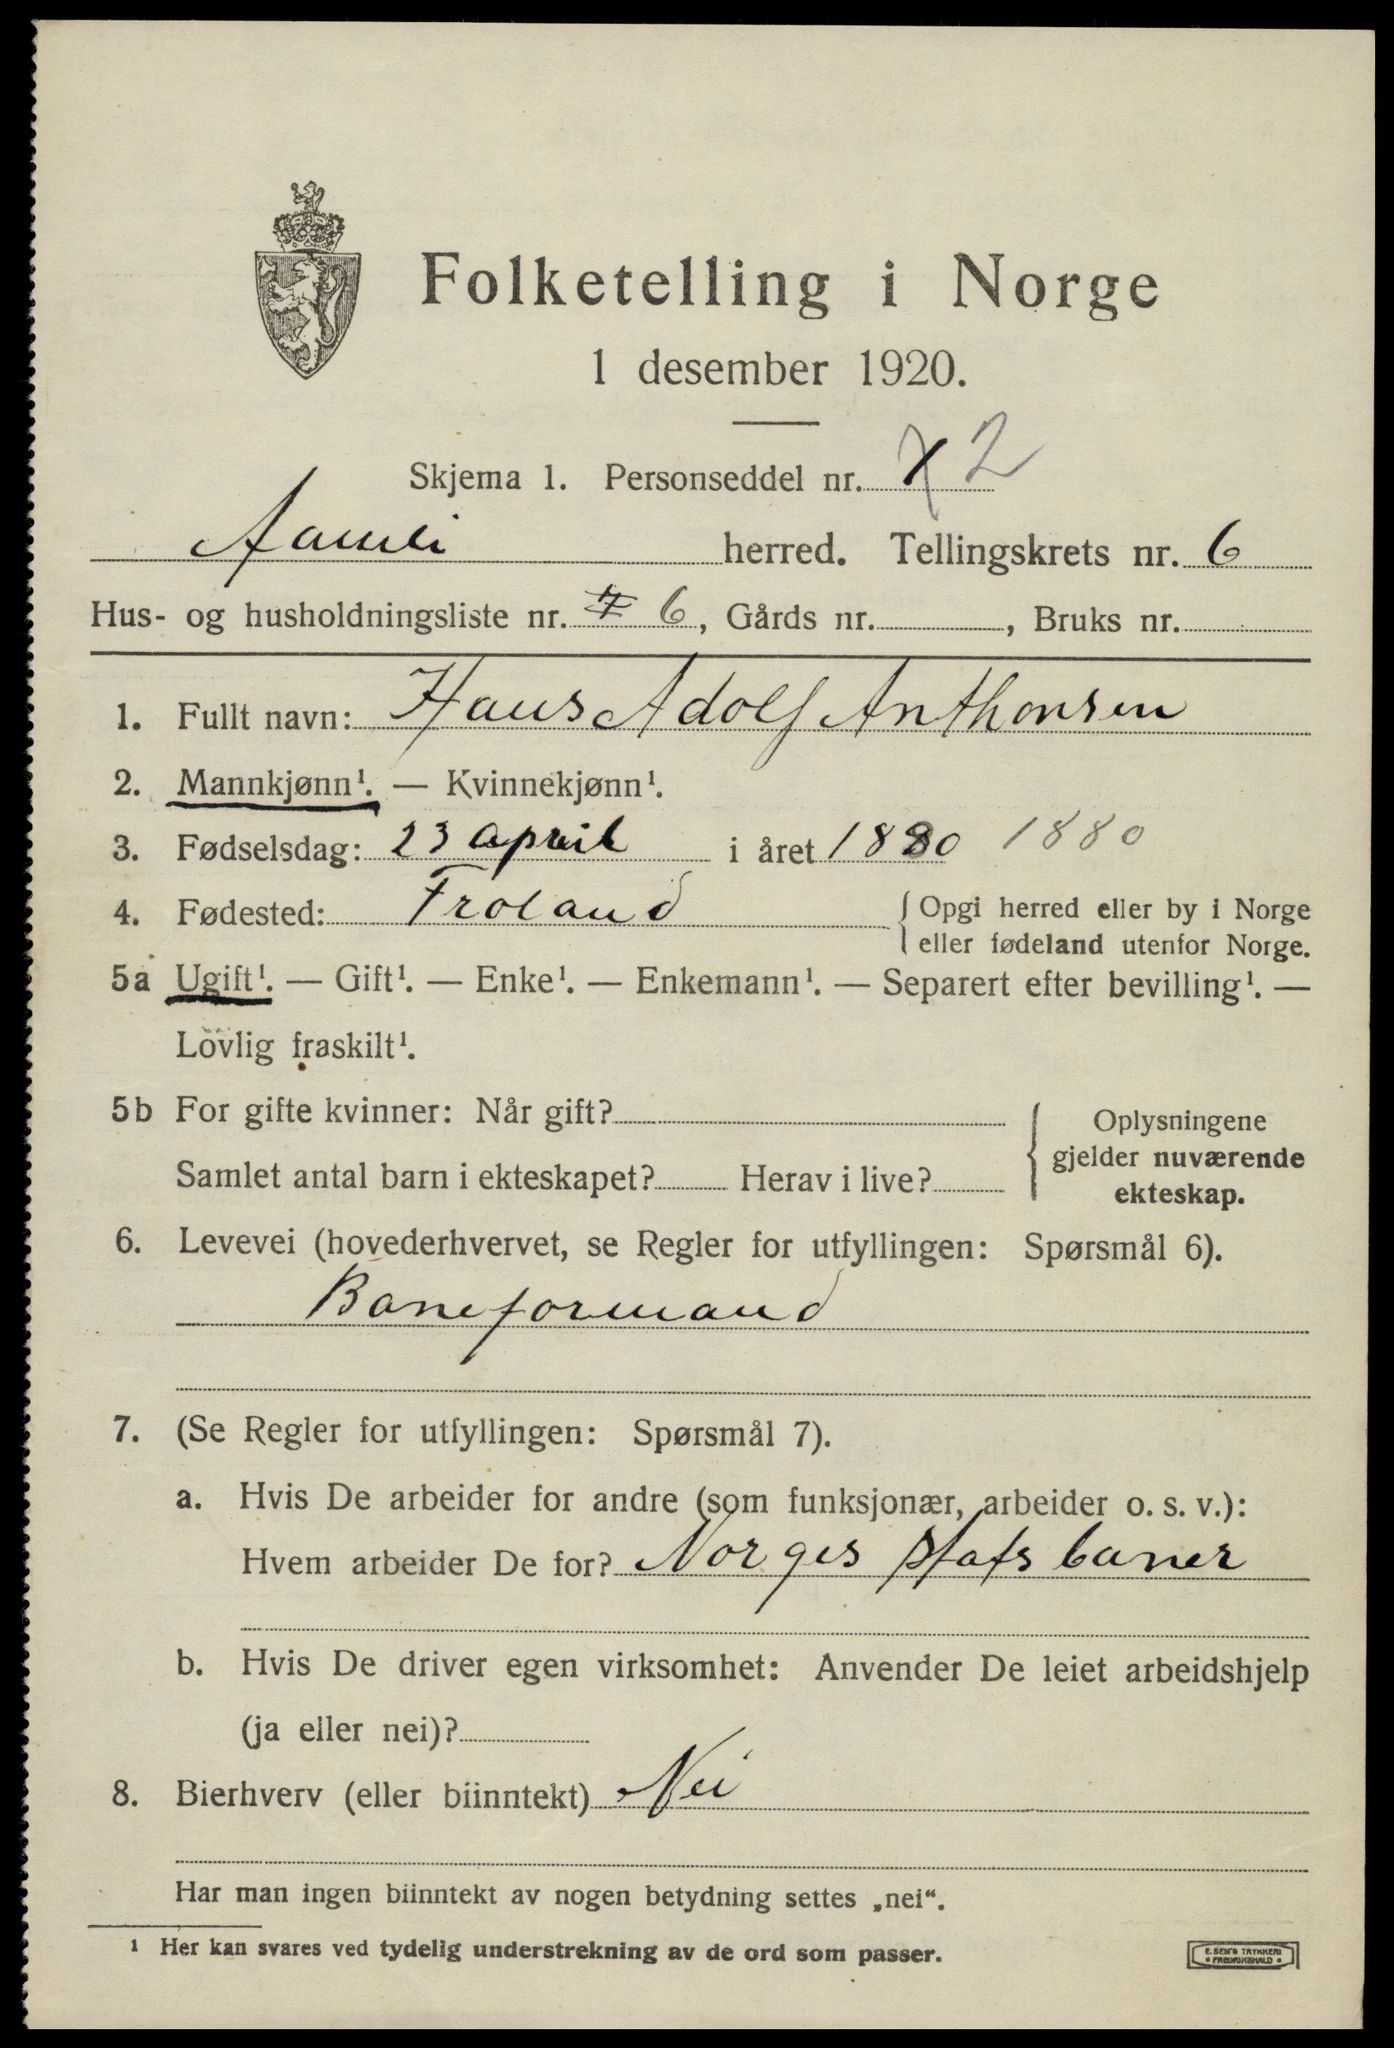 Folketelling i Norge
1 desember 1920.
Skjema 1. Personseddel nr. 2
Aamli herred. Tellingskrets nr. 6
Hus- og husholdningsliste nr. 7 6, Gårds nr. , Bruks nr.
1. Fullt navn: Hans Adolf Anthonsen
2. Mannkjønn¹. — Kvinnekjønn¹.
3. Fødselsdag: 23 april i året 1880 1880
4. Fødested: Froland { Opgi herred eller by i Norge
eller fødeland utenfor Norge.
5a Ugift¹. — Gift¹. — Enke¹. — Enkemann¹. — Separert efter bevilling¹. —
Lovlig fraskilt¹.
5b For gifte kvinner: Når gift? { Oplysningene
gjelder nuværende
Samlet antal barn i ekteskapet? Herav i live? ekteskap.
6. Levevei (hovederhvervet, se Regler for utfyllingen: Spørsmål 6).
Baneformand
7. (Se Regler for utfyllingen: Spørsmål 7).
a. Hvis De arbeider for andre (som funksjonær, arbeider o. s. v.):
Hvem arbeider De for? Norges stats baner
b. Hvis De driver egen virksomhet: Anvender De leiet arbeidshjelp
(ja eller nei)?
8. Bierhverv (eller biinntekt) Nei
Har man ingen biinntekt av nogen betydning settes „nei“.
¹ Her kan svares ved tydelig understrekning av de ord som passer.
E. SEM'S TRYKKERI
FREDRIKSHALD